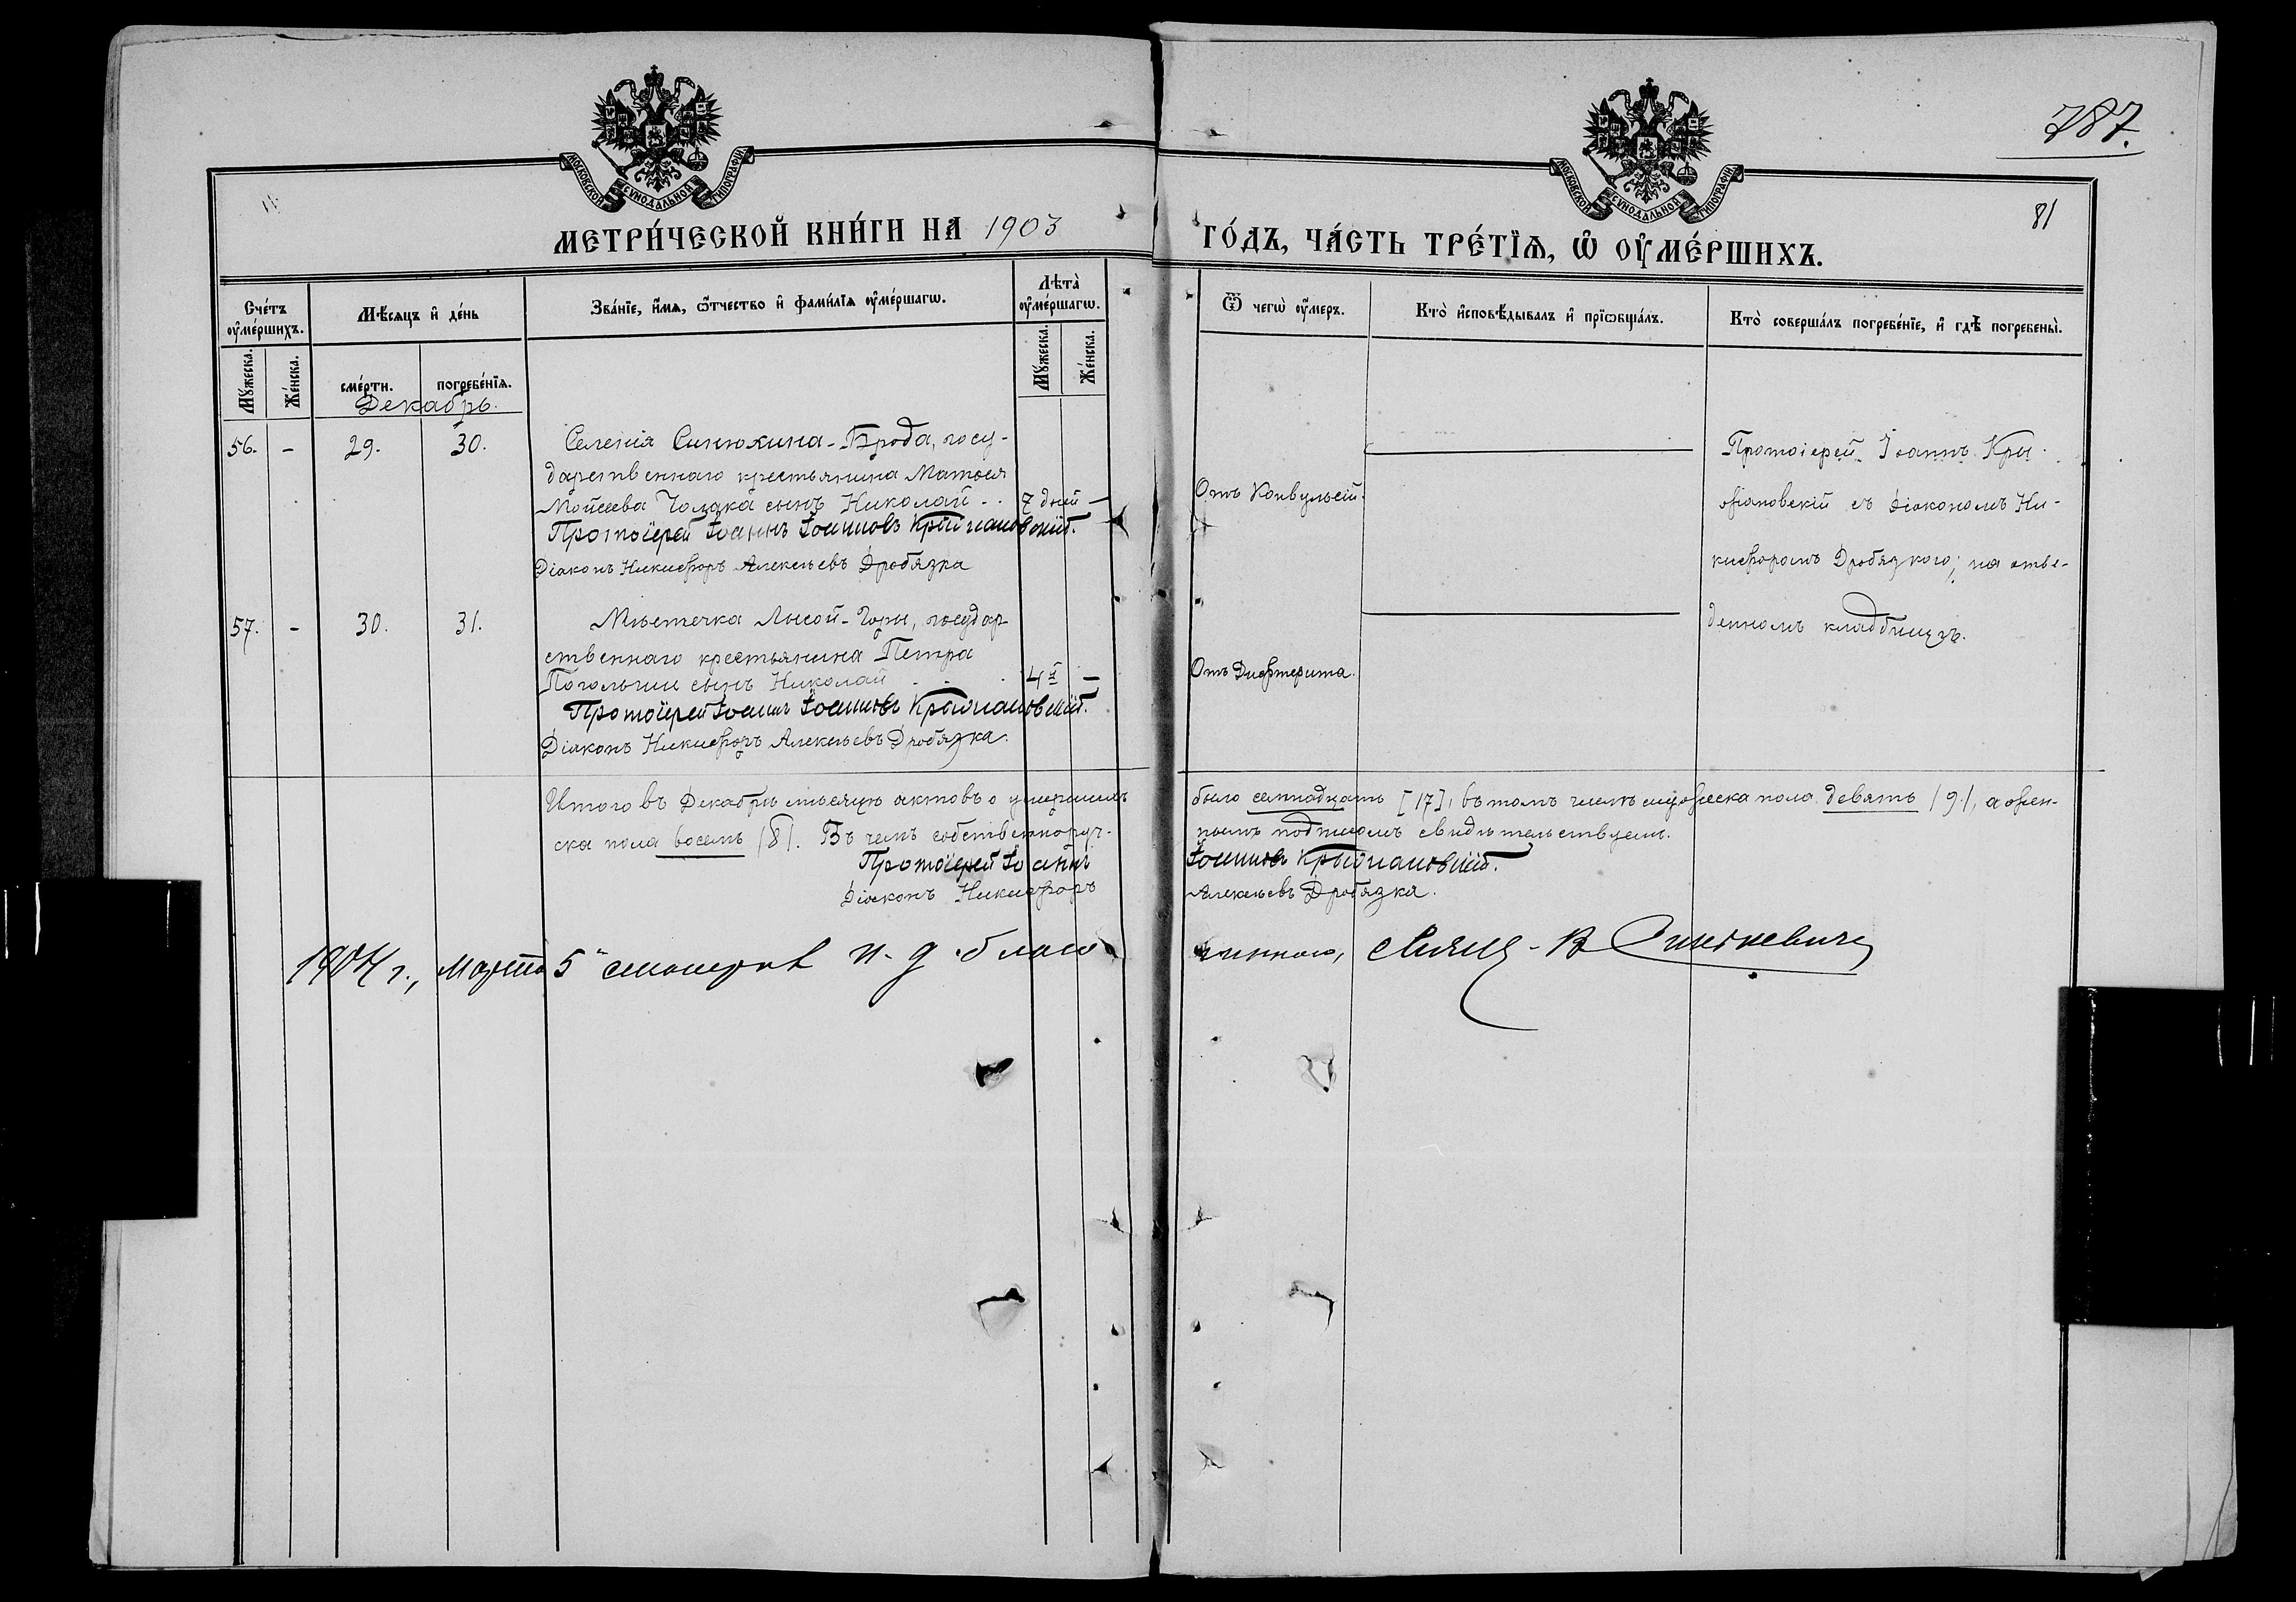 787.
81
МОСКОВСКОЙ СѴНОДАЛЬНОЙ ТИПОГРАФІИ
МОСКОВСКОЙ СѴНОДАЛЬНОЙ ТИПОГРАФІИ
МЕТРИ́ЧЕСКОЙ КНИ́ГИ НА 1903 ГО́ДЪ, ЧА́СТЬ ТРЕ́ТЇѦ, Ѡ҆ ОУ҆МЕ́РШИХЪ.
Сче́тъ оу҆ме́ршихъ.
Мꙋ́жеска.
Же́нска.
Мѣ́сѧцъ и҆ де́нь
сме́рти.
погребе́нїѧ.
Зва́нїе, и҆́мѧ, ѻ҆́тчество и҆ фами́лїѧ оу҆ме́ршагѡ.
Лѣта̀ оу҆ме́ршагѡ.
Мꙋ́жеска.
Же́нска.
Ѿ чегѡ̀ оу҆́меръ.
Кто̀ и҆сповѣ́дывалъ и҆ прїѡбща́лъ.
Кто̀ соверша́лъ погребе́нїе, и҆ гдѣ̀ погребены̀.
Декабрь.
56. - 29. 30.
Селенія Синюхина-Брода, госу-
дарственнаго крестьянина Матѳея
Мойсеева Чолака сынъ Николай . . 7 дней -
Протоіерей Іоаннъ Іоанновъ Крыжановскій.
Діаконъ Никифоръ Алексѣевъ Дробязка
Отъ Конвульсій.
Протоіерей Іоаннъ Кры-
жановскій съ діакономъ Ни-
кифоромъ Дробязкою; на отве-
денномъ кладбищѣ.
57. - 30. 31.
Мѣстечка Лысой-Горы, государ-
ственнаго крестьянина Петра
сынъ Николай . . . 4 -
Протоіерей Іоаннъ Іоанновъ Крыжановскій.
Діаконъ Никифоръ Алексѣевъ Дробязка.
Отъ Дифтерита.
Итого въ Декабрѣ мѣсяцѣ актовъ о умершихъ было семнадцать [17], въ томъ числѣ мужеска пола девять /9/, а жен-
ска пола восемь /8/. Въ чемъ собственноруч-нымъ подписомъ свидѣтельствуемъ.
Протоіерей Іоаннъ Іоанновъ Крыжановскій.
Діаконъ Никифоръ Алексѣевъ Дробязка.
1904 г., Марта 5 смотрѣлъ и. д. благо чиннаго, Свящ. В.